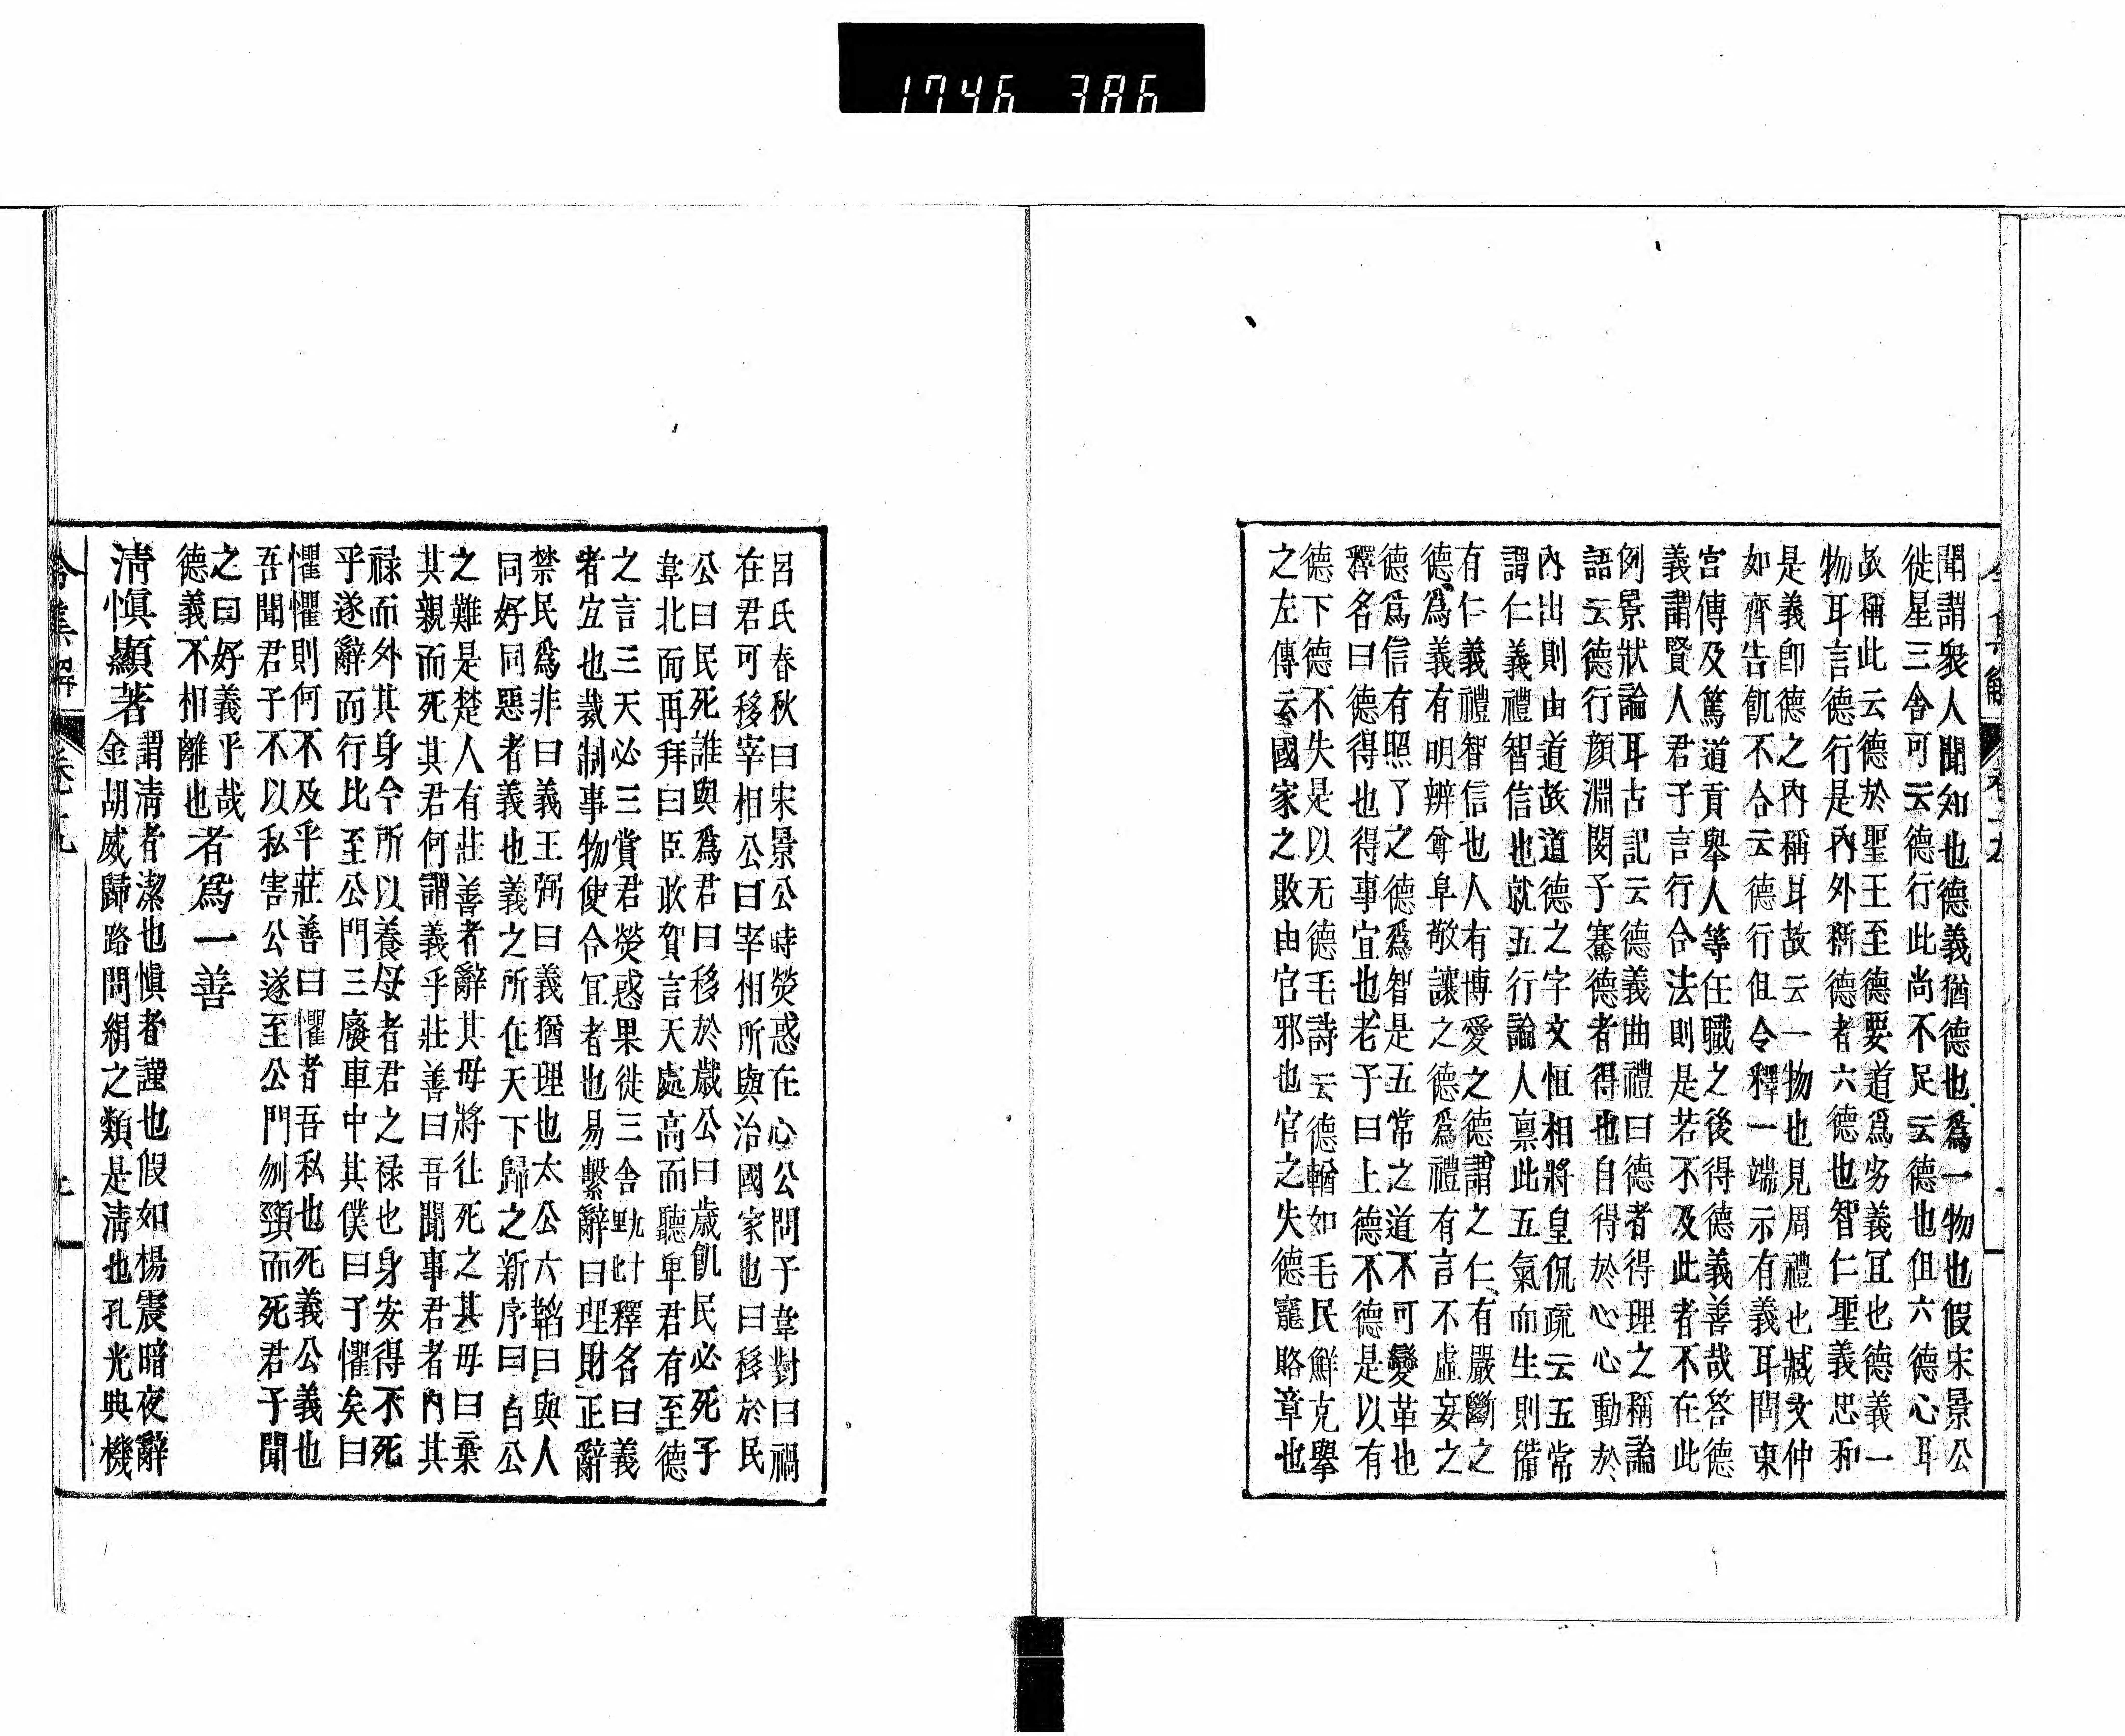 1746 386
聞謂衆人聞知也德義猶德也爲一物也假宋景公
徙星三舍可云德行此尚不足云德也但六德心耳
故稱此云德於聖王至德要道爲劣義冝也德義一
物耳言德行是內外稱德者六德也智仁聖義忠和
是義卽德之內稱耳故云一物也見周禮也臧文仲
如齊告飢不合云德行但令釋一端示有義耳問東
宮傳及篤道貢舉人等任職之後得德義善哉答德
義謂賢人君子言行合法則是若不及此者不在此
例景狀論耳古記云德義曲禮曰德者得理之稱論
語云德行顏淵閔子騫德者得也自得於心心動於
內出則由道故道德之字文恒相將皇侃疏云五常
謂仁義禮智信也就五行論人稟此五氣而生則備
有仁義禮智信也人有博愛之德謂之仁有嚴斷之
德爲義有明辨尊卑敬讓之德爲禮有言不虛妄之
德爲信有照了之德爲智是五常之道不可變革也
釋名曰德得也得事宜也老子曰上德不德是以有
德下德不失是以无德毛詩云德輶如毛民鮮克擧
之左傳云國家之敗由官邪也官之失德寵賂章也
令集解 卷十九
呂氏春秋曰宋景公時熒惑在心公問子韋對曰禍
在君可移宰相公曰宰相所與治國家也曰移於民
公曰民死誰與爲君曰移於歲公曰歲飢民必死子
韋北面再拜曰臣敢賀言天處高而聽卑君有至德
之言三天必三賞君熒惑果徙三舍釋名曰義
者宜也裁制事物使合冝者也易繫辭曰理財正辭
禁民爲非曰義王弼曰義猶理也太公六韜曰與人
同好同惡者義也義之所在天下歸之新序曰白公
之難是楚人有莊善者辭其母將往死之其母曰棄
其親而死其君何謂義乎莊善曰吾聞事君者內其
禄而外其身今所以養母者君之禄也身安得不死
乎遂辭而行比至公門三廢車中其僕曰子懼矣曰
懼懼則何不及乎莊善曰懼者吾私也死義公義也
吾聞君子不以私害公遂至公門刎頸而死君子聞
之曰好義乎哉
德義不相離也
者爲一善
清愼顯著
謂淸者潔也愼者謹也假如楊震暗夜辭
金胡威歸路問絹之類是淸也孔光典機
令集解 卷十九